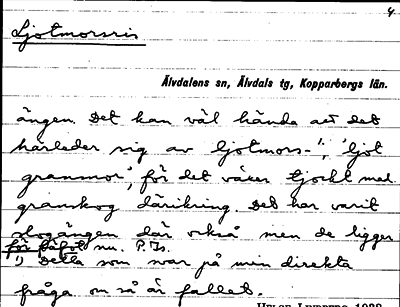 4.
Ljotmorsris
Älvdalens sn, Älvdals tg, Kopparbergs län.
ängen. Det kan väl hända att det
härleder sig av ljotmors- 1), 'ljot
granmor', för det växer tjockt med
granskog däromkring. Det har varit
slogängen där också men de ligger
för fäfot nu. P. Is.
1) Detta som svar på min direkta
fråga om så är fallet.